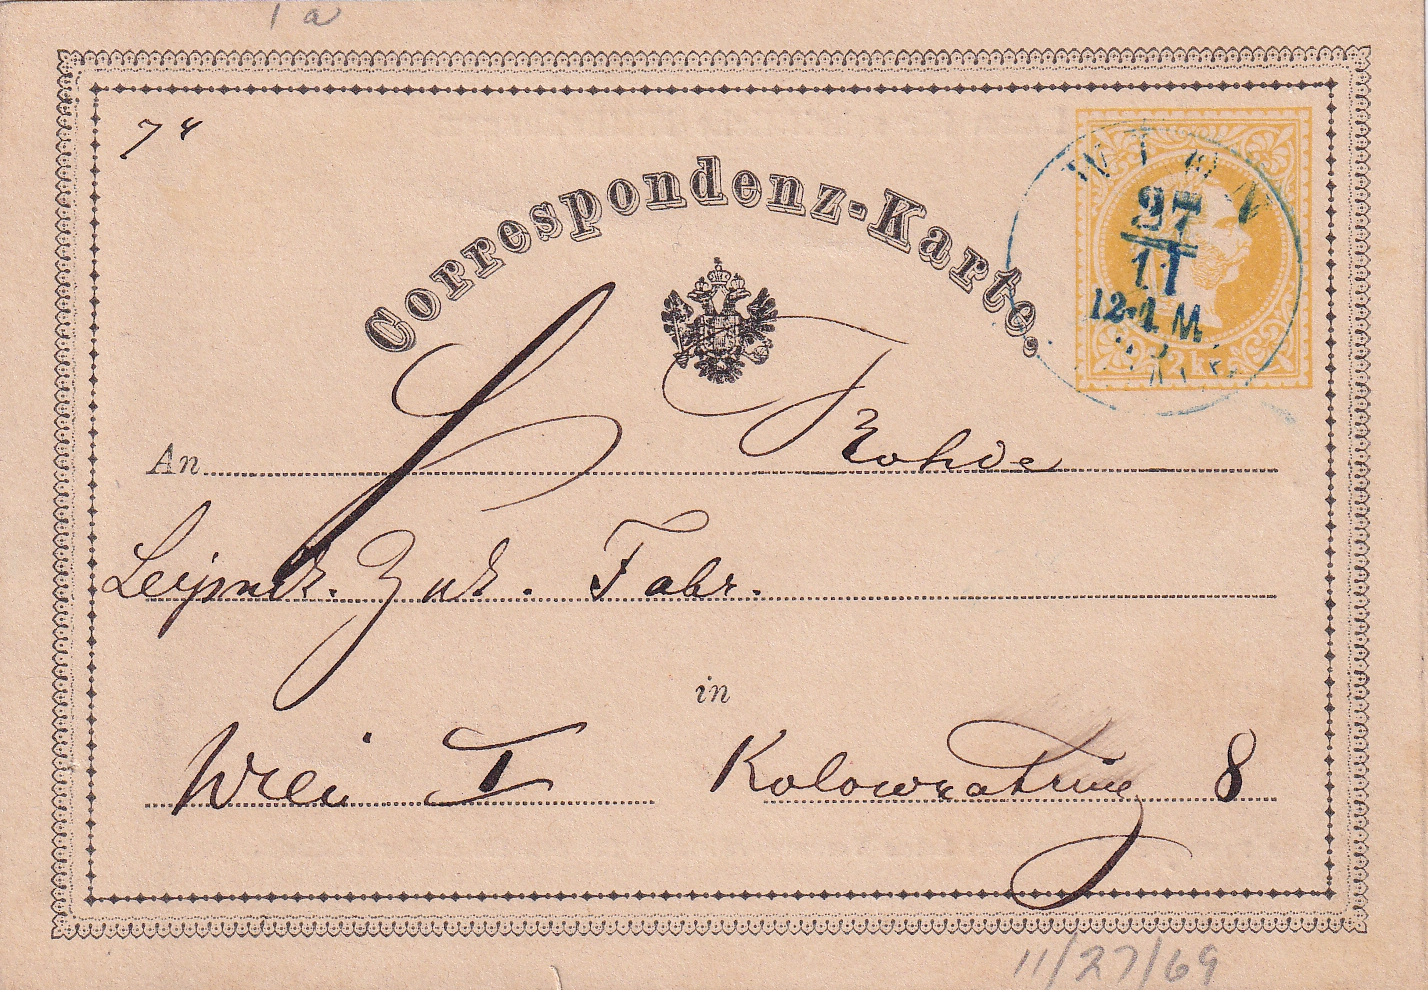 1 a
74
Correspondenz-Karte.
WIEN
27
11
12-1.M.
2 kr.
An Rohde
Fabr.
in
Wien I Kolowratring 8
11/27/69